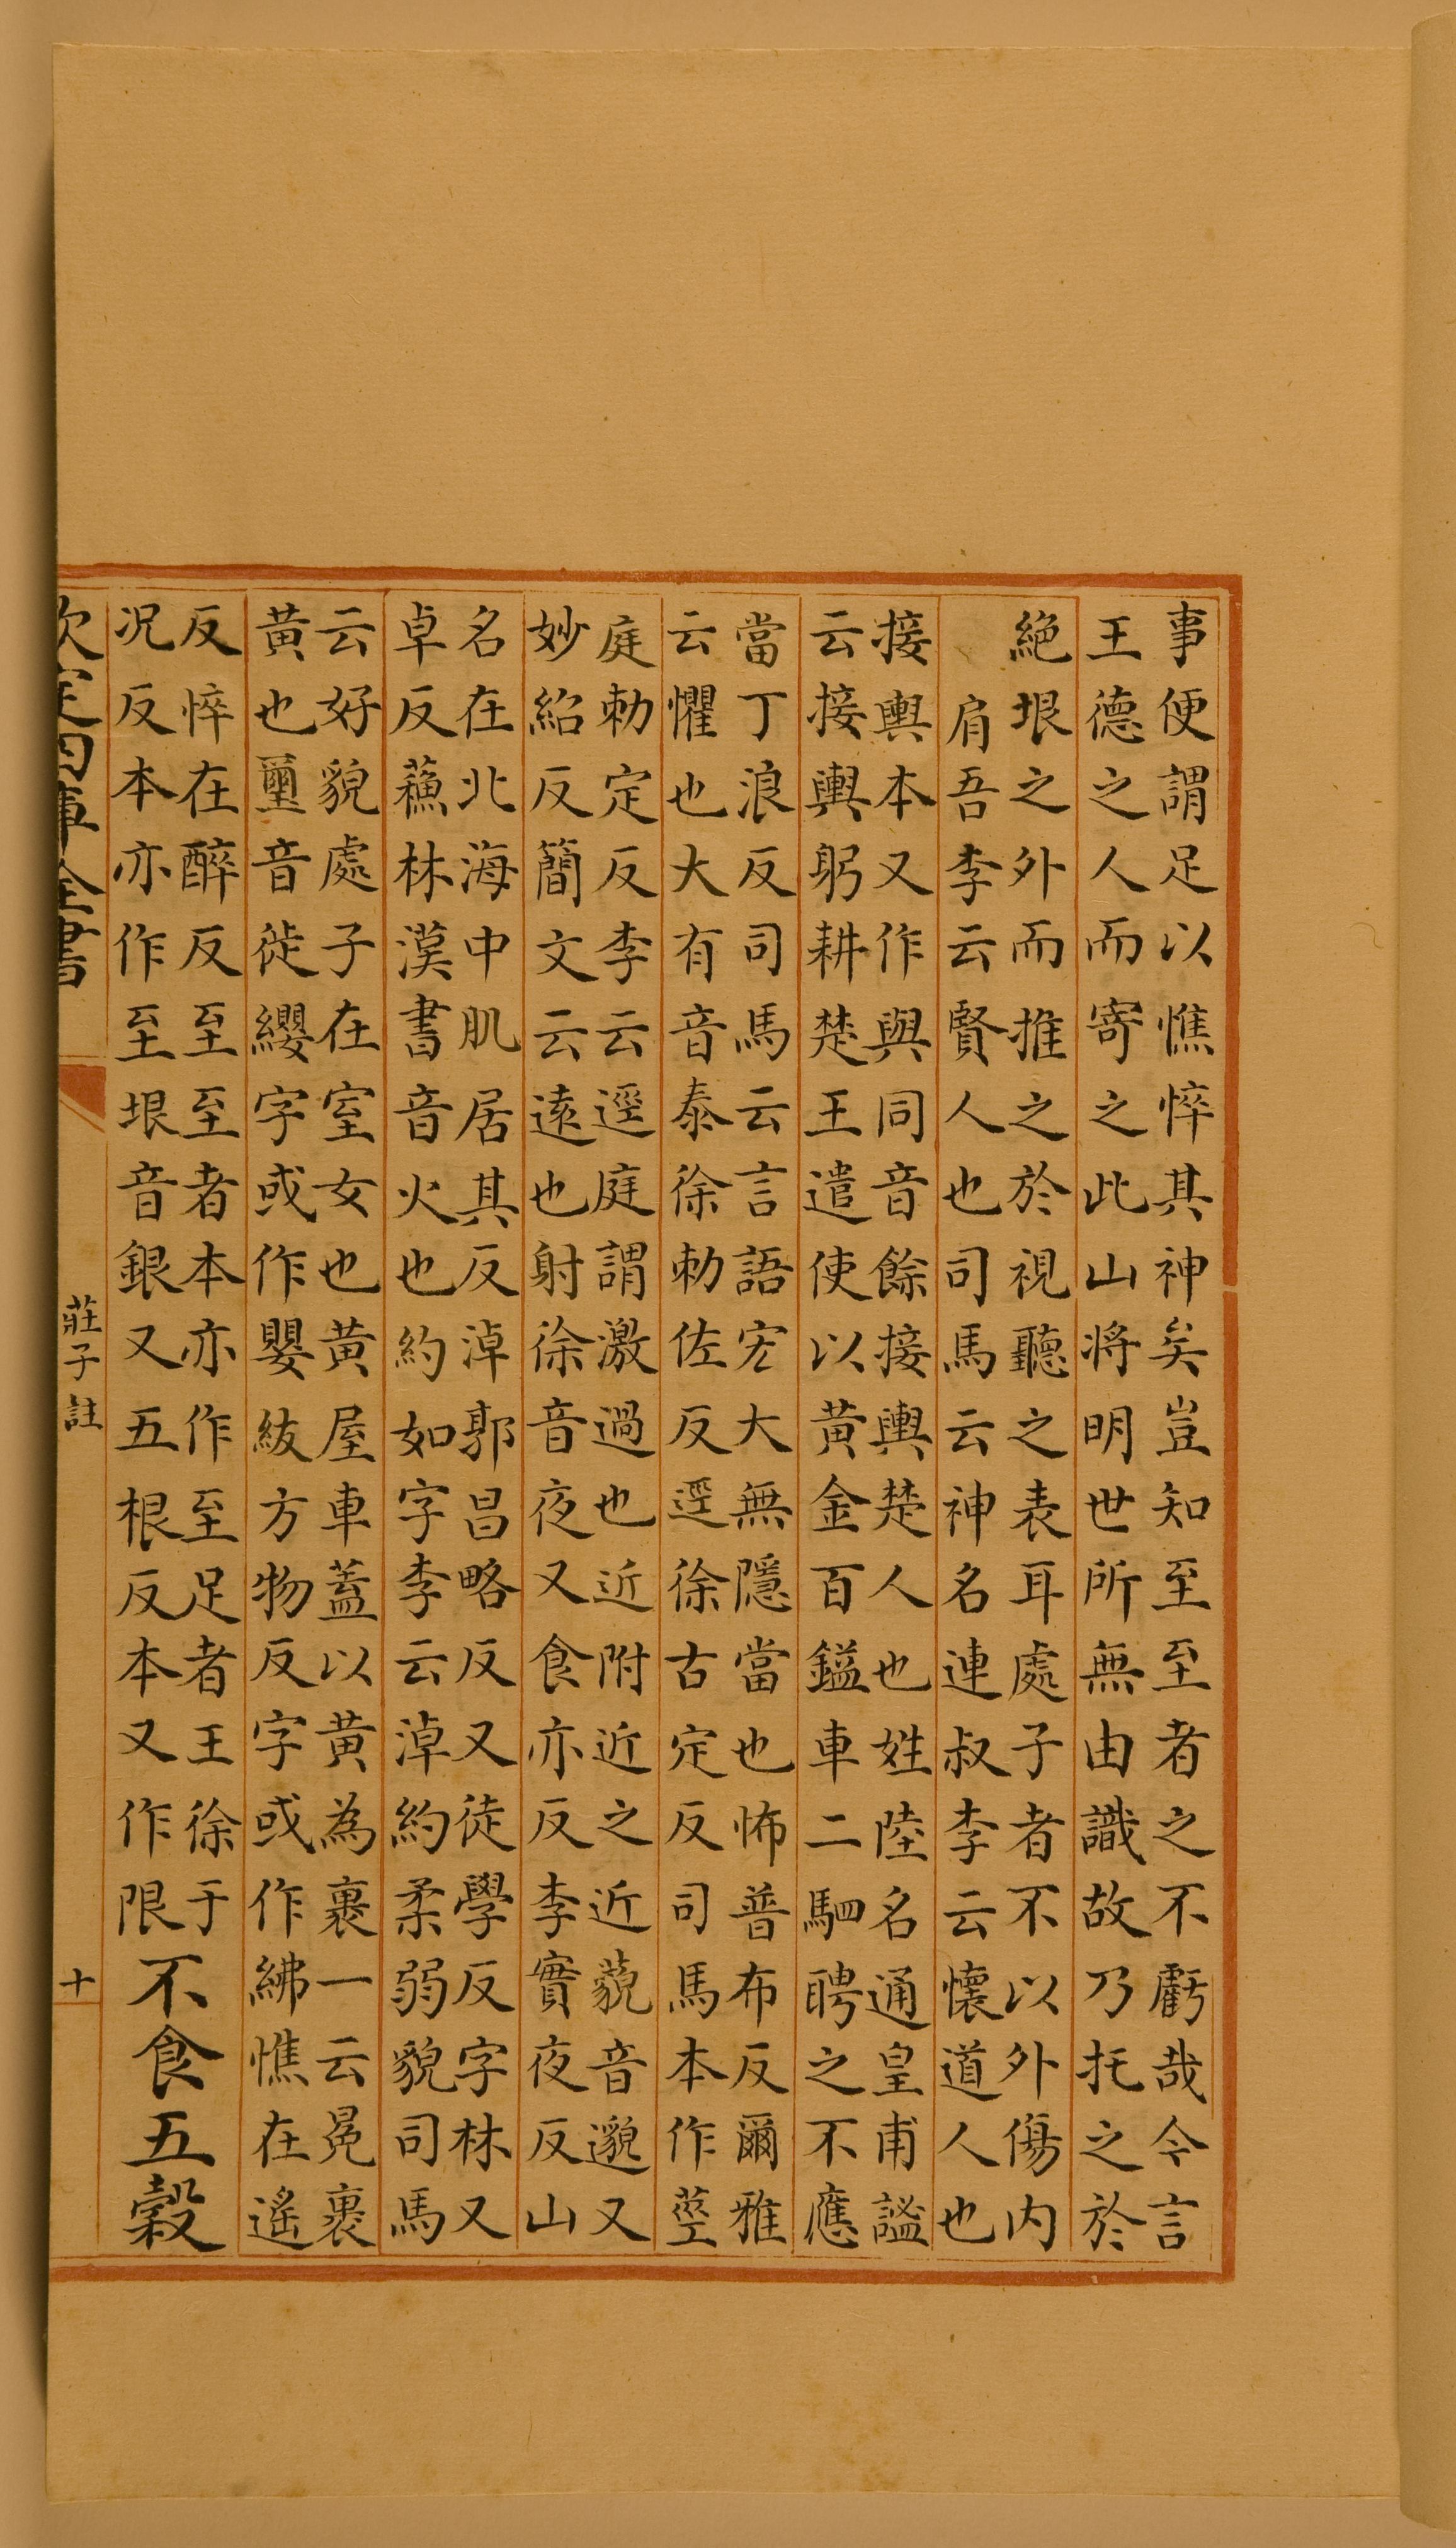 事便謂足以憔悴其神矣豈知至至者之不虧哉今言
王德之人而寄之此山將明世所無由識故乃托之於
絶垠之外而推之於視聽之表耳處子者不以外傷内
肩吾李云賢人也司馬云神名連叔李云懷道人也
接輿本又作與同音餘接輿楚人也姓陸名通皇甫謐
云接輿躬耕楚王遣使以黄金百鎰車二駟聘之不應
當丁浪反司馬云言語宏大無隱當也怖普布反爾雅
云懼也大有音泰徐勅佐反逕徐古定反司馬本作莖
庭勅定反李云逕庭謂激過也近附近之近藐音邈又
妙紹反簡文云遠也射徐音夜又食亦反李實夜反山
名在北海中肌居其反淖郭昌略反又徒學反字林又
卓反蘓林漢書音火也約如字李云淖約柔弱貌司馬
云好貌處子在室女也黄屋車蓋以黄為裹一云冕裹
黄也璽音徙纓字或作嬰紱方物反字或作紼憔在遥
反悴在醉反至至者本亦作至足者王徐于
况反本亦作至垠音銀又五根反本又作限
不食五穀
欽定四庫全書
莊子註
十